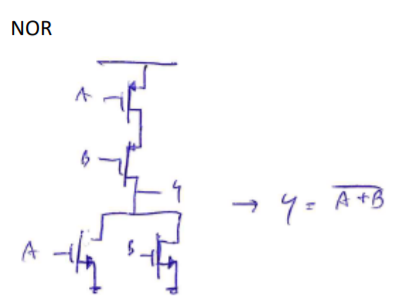 NOR
A
B
y
A
B
→ y = \overline{A+B}